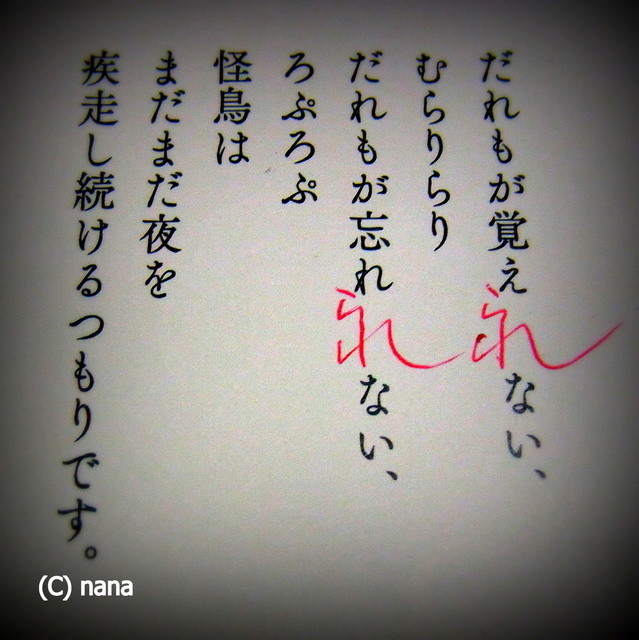 だれもが覚えられない、
むらりらり
だれもが忘れられない、
ろぷろぷ
怪鳥は
まだまだ夜を
疾走し続けるつもりです。
(C) nana